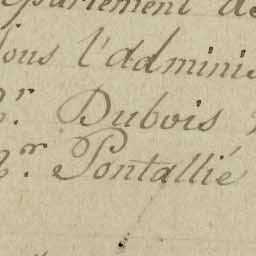 épartement de
sous l'adminis
Mr. Dubois
Mr. Pontallié